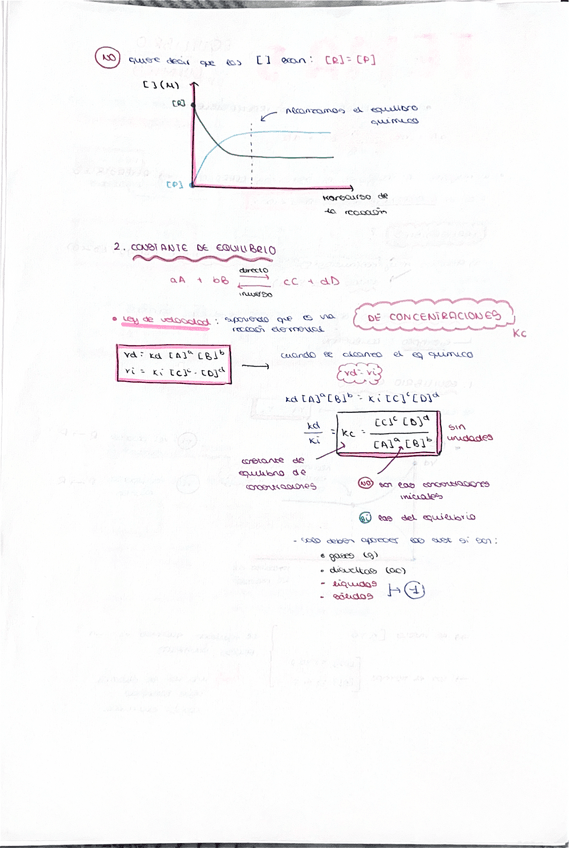 NO quiere decir que las [ ] sean: [R]=[P]
[ ] (M)
[R]
Alcanzamos el equilibrio
químico
[P]
transcurso de
la reacción
2. CONSTANTE DE EQUILIBRIO
aA + bB directo inverso cC + dD
• Ley de velocidad: suponiendo que es una
reacción elemental
DE CONCENTRACIONES
Kc
vd = kd [A]ᵃ [B]ᵇ
vi = ki [C]ᶜ · [D]ᵈ
cuando se alcanza el eq químico
vd = vi
kd [A]ᵃ [B]ᵇ = ki [C]ᶜ [D]ᵈ
kd/ki = Kc = [C]ᶜ [D]ᵈ / [A]ᵃ [B]ᵇ
sin
unidades
constante de
equilibrio de
concentraciones
NO son las concentraciones
iniciales
SÍ las del equilibrio
- solo deben aparecer las sust si son:
• gases (g)
• disueltos (ac)
- líquidos
- sólidos
→ 1